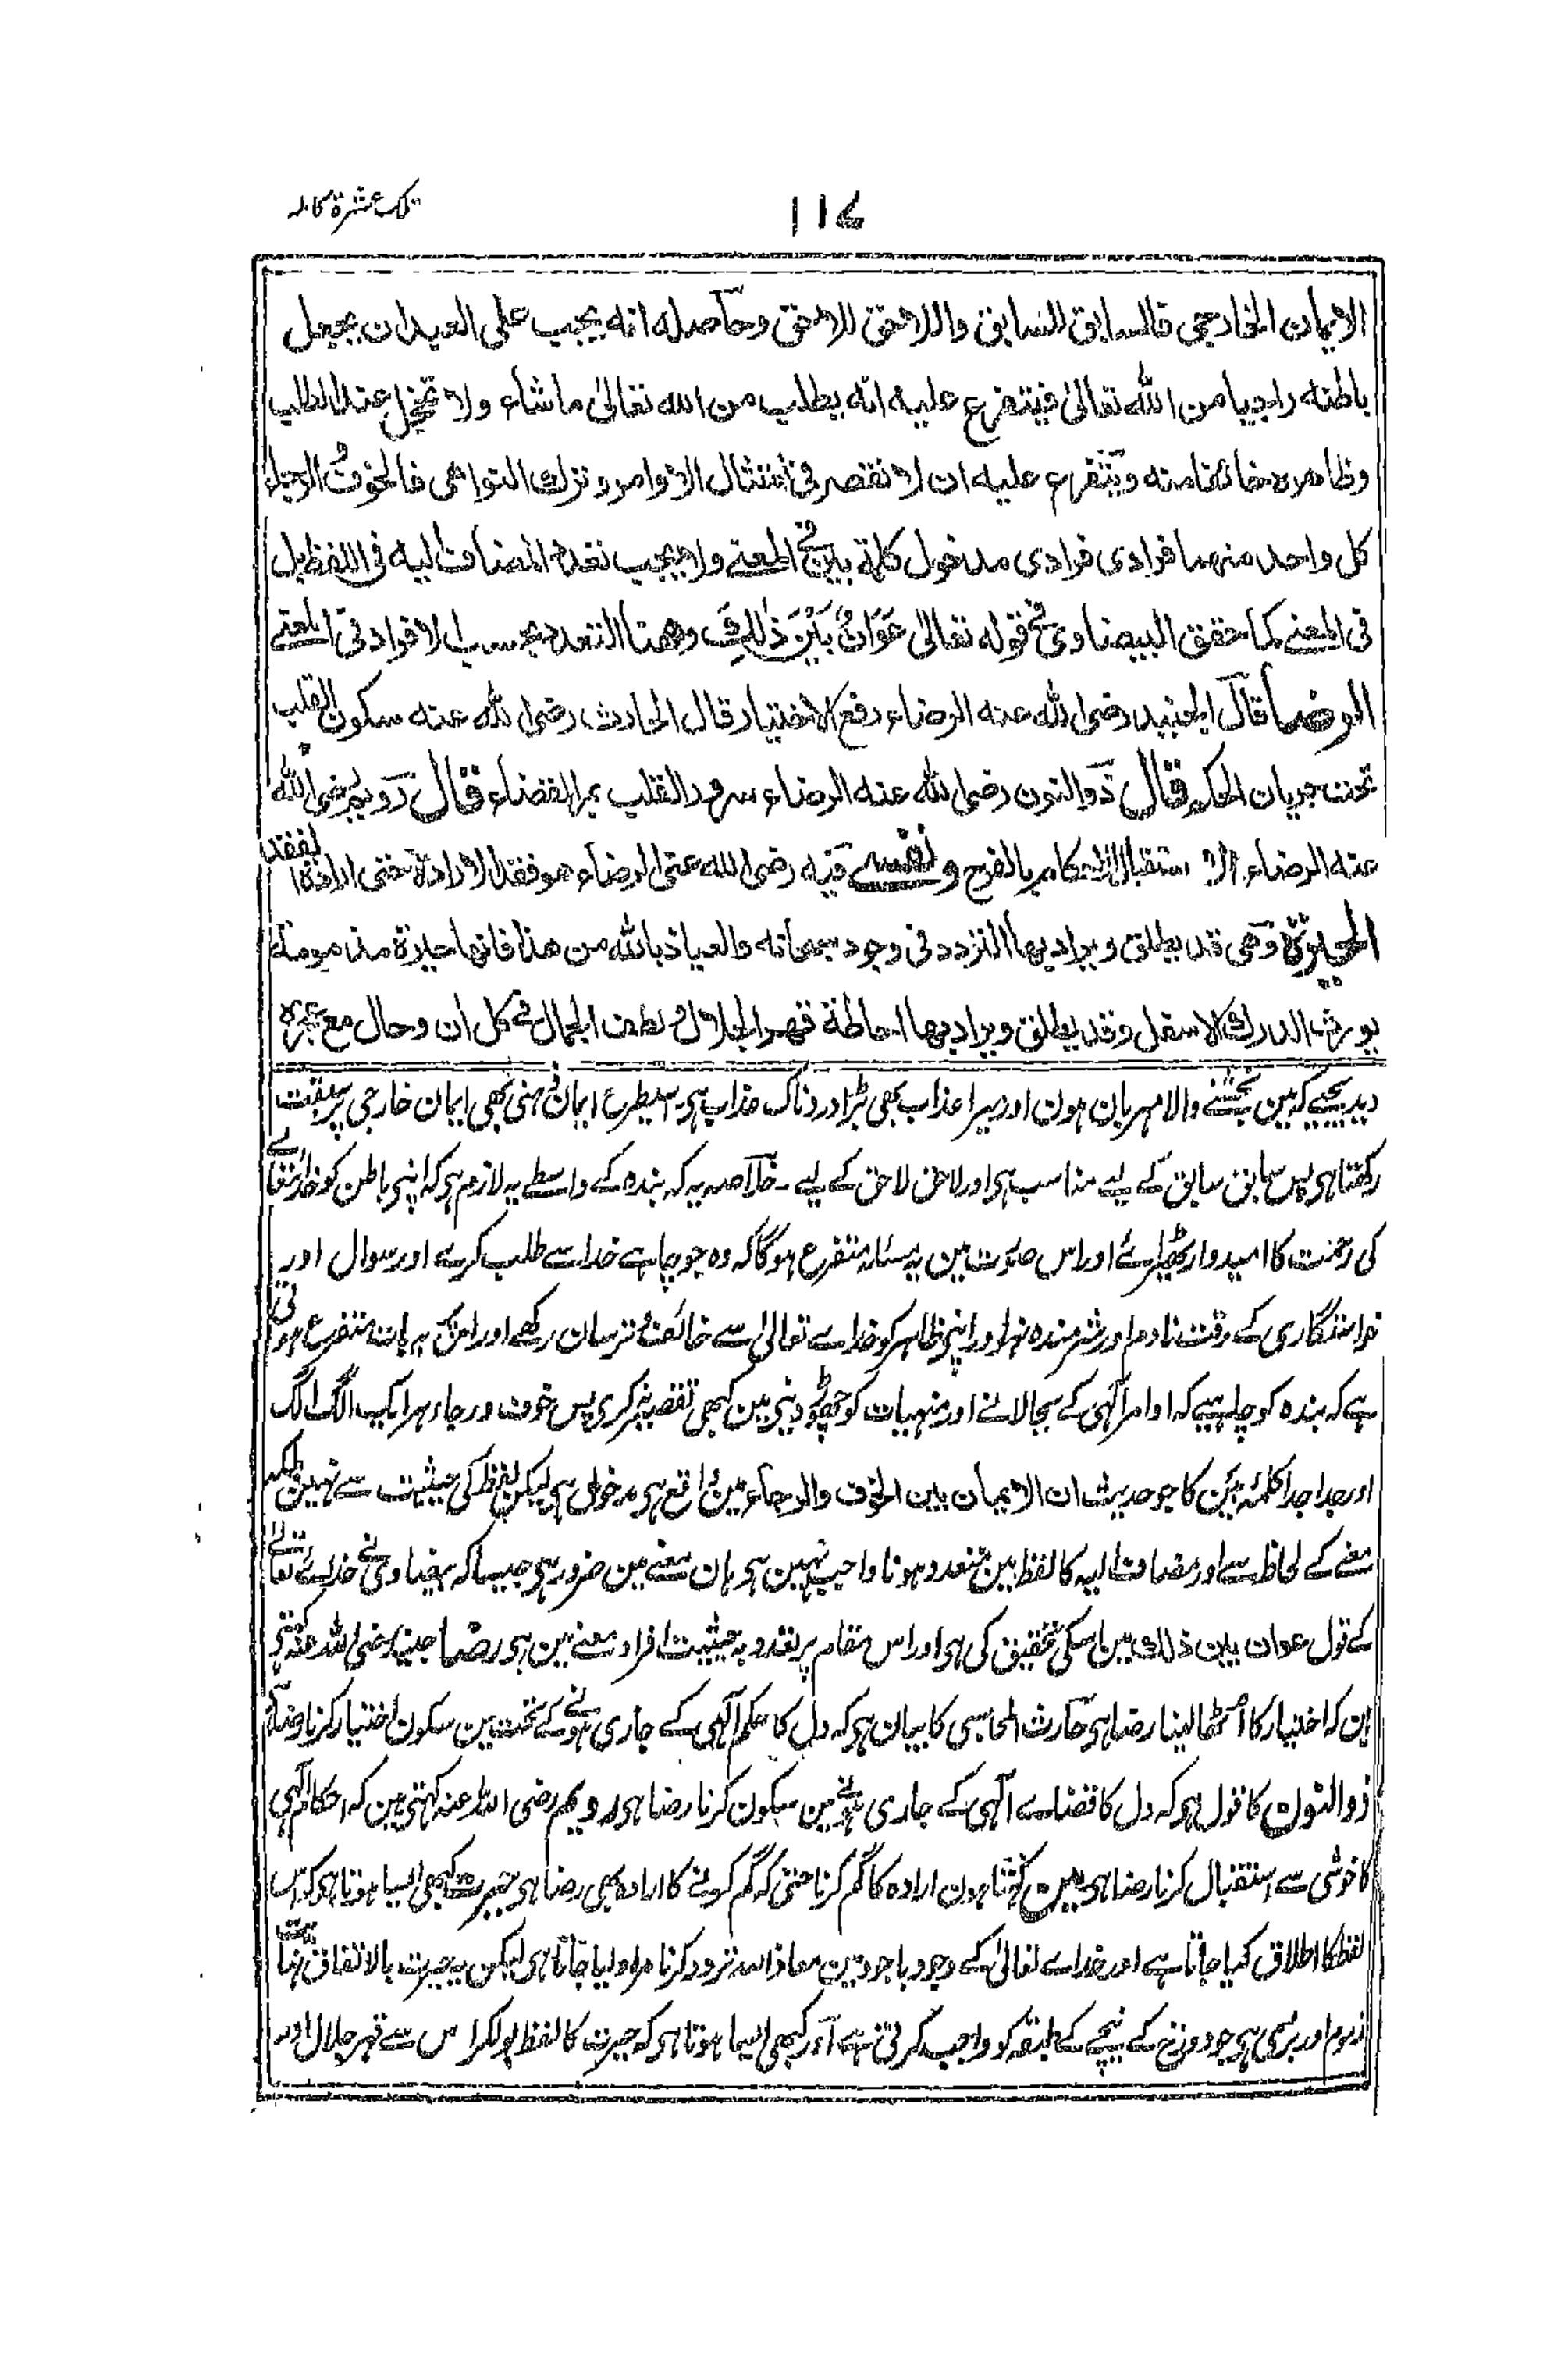 تلک عشرة کاملہ
۱۱۷
الایمان الخارجی فالسابق للسابق واللاحق للاحق وحاصله انه یجب علی العبد ان یجعل
باطنه راجیا من الله تعالیٰ فیتفرع علیه انه یطلب من الله تعالیٰ ماشاء ولا تخجل عند الطلب
وظاهره خائفا منه ویتفرع علیه ان لا تقصر فی امتثال الاوامر وترك النواهی فالخوف الرجاء
کل واحد منهما فرادی فرادی مدخول کلمة بین فی المعنے ولا یجب تعدد المضاف الیه فی اللفظ بل
فی المعنے کما حقق البیضاوی فی قوله تعالیٰ عَوَانٌ بَیْنَ ذٰلِكَ وههنا التعدد بحسب الافراد فی المعنے
الرضا قال الجنید رضی الله عنه الرضاء رفع الاختیار قال الحارث رضی الله عنه سکون القلب
تحت جریان الحکم قال ذوالنون رضی الله عنه الرضاء سرور القلب بمر القضاء قال رویم رضی الله
عنه الرضاء استقبال الاحکام بالفرح و نفسے فیه رضی الله عنی الرضاء هو فقد الارادة حتی ارادة لفقد
الحیرة وهی قد یطلق ویراد بها التردد فی وجود سبحانه والعیاذ بالله من هذا فانها حیرة مذمومة
یورث الدرك الاسفل وقد یطلق ویراد بها احاطة قهر الجلال و لطف الجمال فی کل ان وحال مع
دیدیجیے کہ مین بخشنے والا مہربان ہون اور میرا عذاب بھی بڑا دردناک عذاب ہی اسیطرح ایمان ذہنی بھی ایمان خارجی پر سبقت
رکھتا ہی پس سابق سابق کے لیے مناسب ہی اور لاحق لاحق کے لیے ۔ خلاصہ یہ کہ بندہ کے واسطے یہ لازم ہی کہ اپنی باطن کو خدائے تعالے
کی رحمت کا امیدوار ٹھیرائے اور اس صورت مین یہ مسئلہ متفرع ہوگا کہ وہ جو چاہے خدا سے طلب کرے اور سوال اور
خواستگاری کے وقت نادم اور شرمندہ نہو اور اپنی ظاہر کو خداے تعالیٰ سے خائف و ترسان رکھے اور اس پر یہ بات متفرع ہوتی
ہے کہ بندہ کو چاہیے کہ اوامر آلٰہی کے بجا لانے اور منہیات کو چھوڑ دینی مین کبھی تقصیر نہ کری پس خوف و رجاء ہر ایک الگ الگ
اور جدا جدا کلمئہ بین کا جو حدیث ان الایمان بین الخوف والرجاء مین واقع ہی مدخول ہی لیکن لفظ کی حیثیت سے نہین بلکہ
معنے کے لحاظ سے اور مضاف الیہ کا لفظ مین متعدد ہونا واجب نہین ہی ہان معنے مین ضرور ہی جیسا کہ بیضاوی نے خدائے تعالے
کے قول عوان بین ذلك مین اسکی تحقیق کی ہی اور اس مقام پر تعدد بہ حیثیت افراد معنے مین ہی رضا جنید رضی اللہ عنہ کہتے
ہین کہ اختیار کا اُٹھا لینا رضا ہی حارث المحاسبی کا بیان ہی کہ دل کا حکم آلٰہی کے جاری ہونے کے تحت مین سکون اختیار کرنا رضا ہی
ذوالنون کا قول ہی کہ دل کا قضاے آلٰہی کے جاری ہونے مین سکون کرنا رضا ہی رویم رضی اللہ عنہ کہتی ہین کہ احکام آلٰہی
کا خوشی سے استقبال کرنا رضا ہی مین کہتا ہون ارادہ کا گم کرنا حتی کہ گم کرنے کا ارادہ بھی رضا ہی حیرت کبھی ایسا ہوتا ہی کہ اس
لفظ کا اطلاق کیا جاتا ہے اور خداے تعالیٰ کے وجود باجود مین معاذ اللہ تردد کرنا مراد لیا جاتا ہی لیکن یہ حیرت بالاتفاق نہایت
مذموم اور بری ہی جو دوزخ کے نیچے کے طبقہ کو واجب کرتی ہے اور کبھی ایسا ہوتا ہی کہ حیرت کا لفظ بولکر اس سے قہر جلال اور